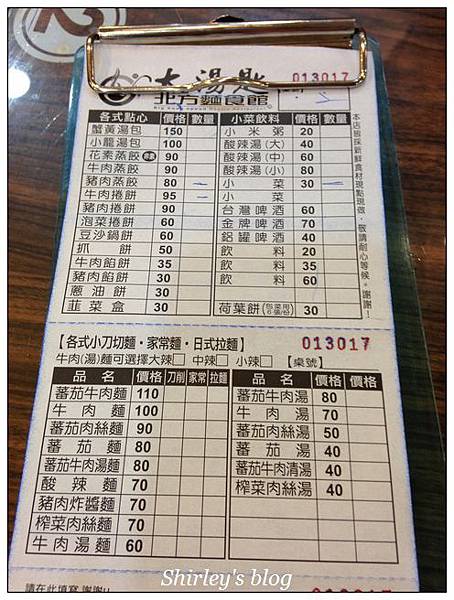 大湯匙 013017
北方麵食館
各式點心 價格 數量 小菜飲料 價格 數量
蟹黃湯包 150 小米粥 20
小籠湯包 100 酸辣湯(大) 40
花素蒸餃 素 90 酸辣湯(中) 60
牛肉蒸餃 90 酸辣湯(小) 80
豬肉蒸餃 80 小菜 30
牛肉捲餅 95 小菜
豬肉捲餅 90 台灣啤酒 60
泡菜捲餅 60 金牌啤酒 70
豆沙鍋餅 60 鋁罐啤酒 40
抓餅 50 飲料 20
牛肉餡餅 35 飲料 35
豬肉餡餅 30 飲料 60
蔥油餅 30
韭菜盒 30 荷葉餅 30
本店皆採新鮮食材現點現做，敬請耐心等候。謝謝！
【各式小刀切麵・家常麵・日式拉麵】 013017
牛肉(湯)麵可選擇大辣□ 中辣□ 小辣□ 【桌號】
品名 價格 刀削 家常 拉麵 品名 價格 數量
蕃茄牛肉麵 110 蕃茄牛肉湯 80
牛肉麵 100 牛肉湯 70
蕃茄肉絲麵 90 蕃茄肉絲湯 50
蕃茄麵 80 蕃茄湯 40
蕃茄牛肉湯麵 80 蕃茄牛肉清湯 40
酸辣麵 70 榨菜肉絲湯 40
豬肉炸醬麵 70
榨菜肉絲麵 70
牛肉湯麵 60
請在此填寫 謝謝!!
Shirley's blog